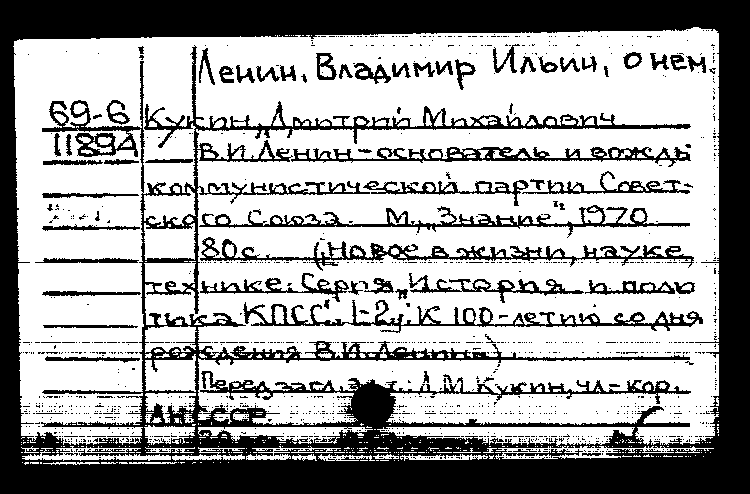 Ленин, Владимир Ильич, о нем.
69-6 Кукин, Дмитрий Михайлович
11894 В.И. Ленин - основатель и вождь
коммунистической партии Совет-
ского Союза. М., "Знание", 1970
80 с. ("Новое в жизни, науке,
технике. Серия "История и поли
тика КПСС". 1-2. К 100-летию со дня
рождения В.И. Ленина).
Перед загл. авт.: Д.М. Кукин, чл.-кор.
АН СССР